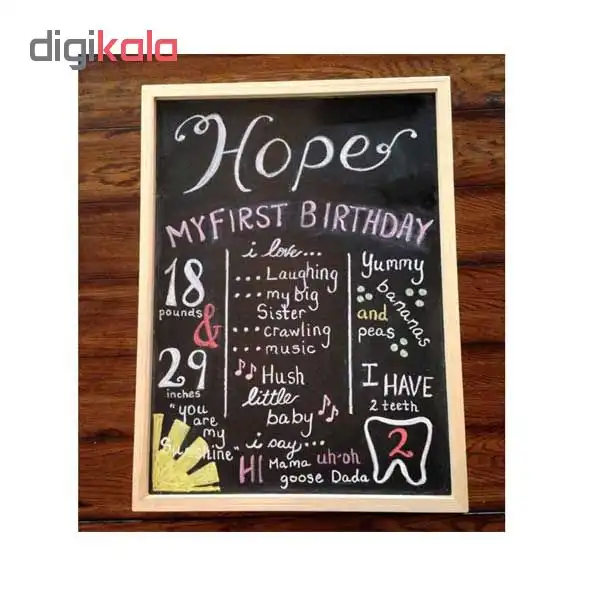 digikala
Hope
MY FIRST BIRTHDAY
18
pounds
&
29
inches
"you
are
my
Sunshine"
i love...
...Laughing
...my big
Sister
...crawling
...music
Hush
little
baby
i say...
HI Mama uh-oh
goose Dada
Yummy
bananas
and
peas
I HAVE
2 teeth
2